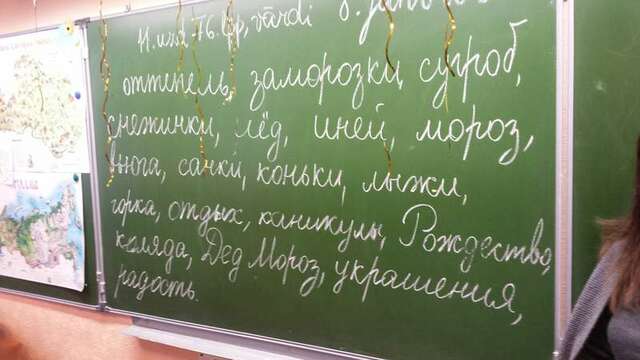 11. uzd. 76. lpp., vārdi
оттепель, заморозки, сугроб,
снежинки, лёд, иней, мороз,
вьюга, санки, коньки, лыжи,
горка, отдых, каникулы, Рождество,
коляда, Дед Мороз, украшения,
радость.